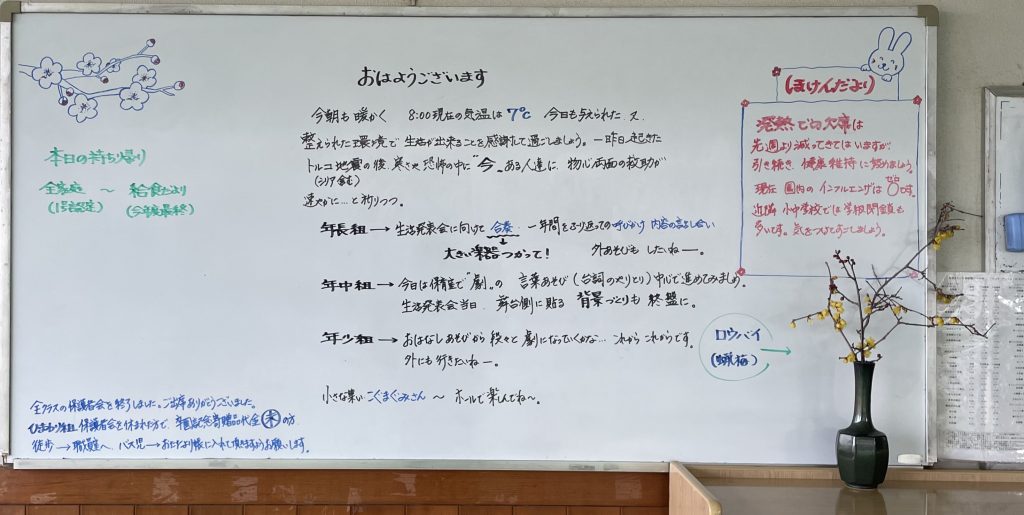 おはようございます
今朝も暖かく 8:00現在の気温は7℃ 今日も与えられた、又、
整えられた環境で生活が出来ることを感謝して過ごしましょう。一昨日起きた
トルコ地震の後、寒さや恐怖の中に“今”ある人達に、物心両面の救助が
(シリア含む)
速やかに…と祈りつつ。
年長組→生活発表会に向けて合奏、一年間をふり返っての呼びかけ内容の話し合い
大きい楽器つかって! 外あそびもしたいねー。
年中組→今日は保育室で“劇”の言葉あそび(台詞のやりとり)中心で進めてみましょう。
生活発表会当日、舞台側に貼る背景づくりも終盤に。
年少組→おはなしあそびから段々と劇になっていくかな…これからこれからです。
外にも行きたいねー。
小さな集い こぐまぐみさん 〜 ホールで楽しんでね〜。
本日の持ち帰り
全家庭 〜 給食だより
(1号認定) (今年度最終)
全クラスの保護者会を終了しました。ご出席ありがとうございました。
ひまわり組 保護者会を休まれた方で、卒園記念寄贈品代金 未 の方
徒歩→職員室へ バス児→おたより帳に入れて頂きますようお願いします。
ほけんだより
発熱での欠席は
先週より減ってきてはいますが、
引き続き、健康維持に努めましょう。
現在 園内のインフルエンザは0です。
ゼロ
近隣 小中学校では学級閉鎖も
多いです。気をつけてすごしましょう。
ロウバイ
(蝋梅)